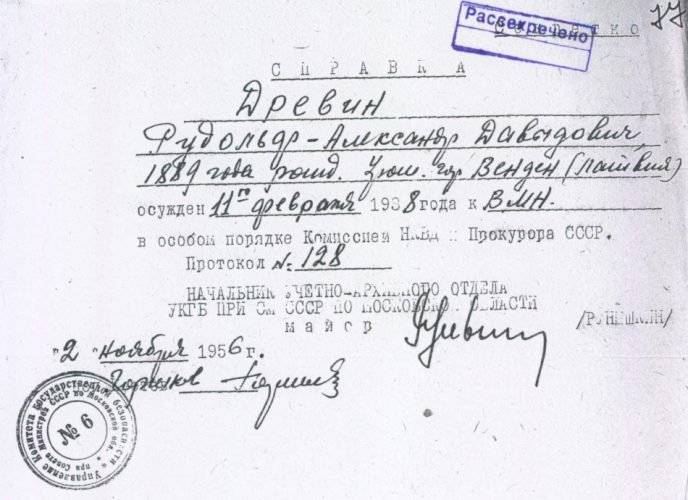 Рассекречено
Секретно
77
СПРАВКА
Древин
Рудольф-Александр Давыдович,
1889 года рожд. Урож. гор. Венден (Латвия)
осужден 11го февраля 1938 года к ВМН.
в особом порядке Комиссией НКВД и Прокурора СССР.
Протокол № 128
НАЧАЛЬНИК УЧЕТНО-АРХИВНОГО ОТДЕЛА
УКГБ ПРИ СМ СССР ПО МОСКОВСКОЙ ОБЛАСТИ
майор
2 ноября 1956 г.
Управление Комитета государственной безопасности
при Совете министров СССР по Московской обл.
№ 6